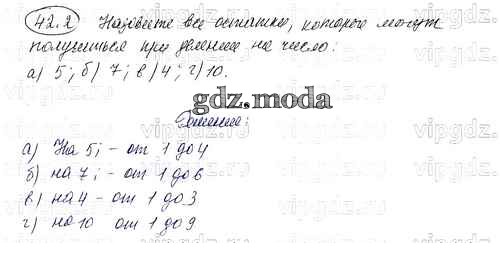 42.2 Назовите все остатки, которые могут
получиться при делении на число:
а) 5; б) 7; в) 4; г) 10.
gdz.moda
Решение:
а) На 5; - от 1 до 4
б) на 7; - от 1 до 6
в) на 4 - от 1 до 3
г) на 10 от 1 до 9